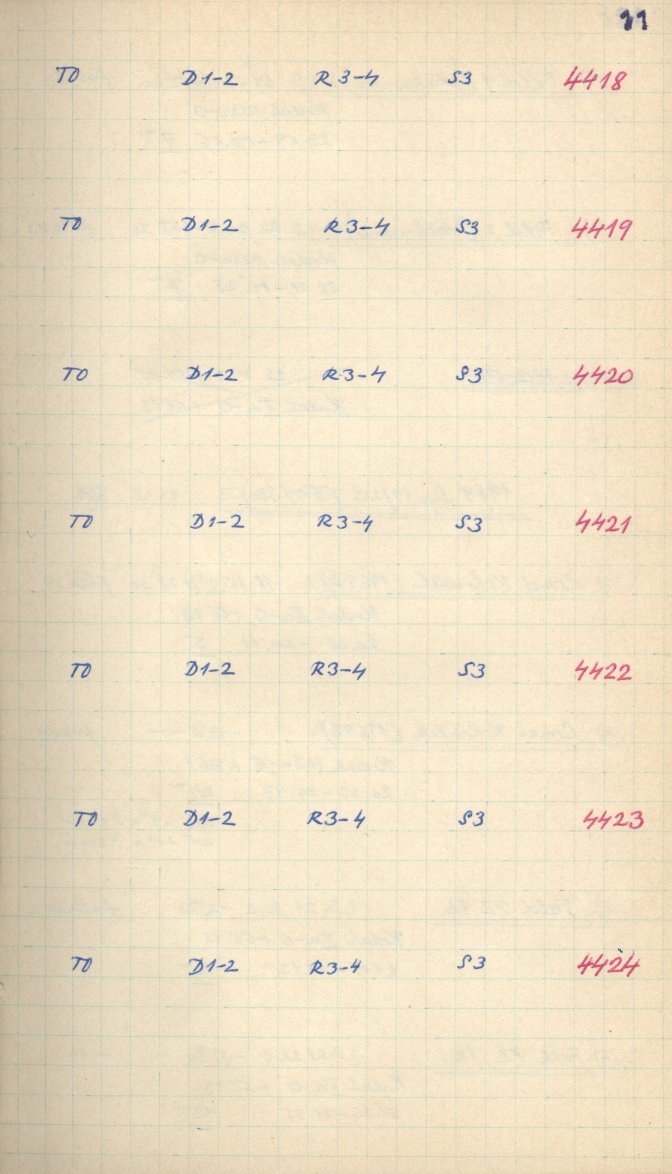 11
TO D1-2 R3-4 S3 4418
TO D1-2 R3-4 S3 4419
TO D1-2 R3-4 S3 4420
TO D1-2 R3-4 S3 4421
TO D1-2 R3-4 S3 4422
TO D1-2 R3-4 S3 4423
TO D1-2 R3-4 S3 4424